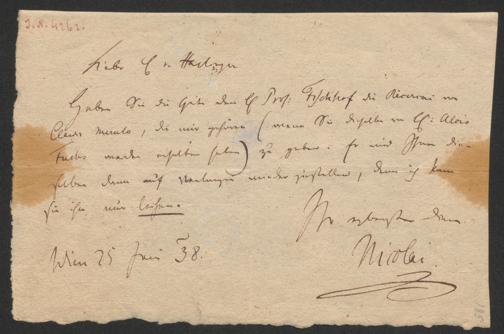 I.N. 4262.
Lieber H v Haslinger
Haben Sie die Güte dem H Prof. Fischhof die Ricercari von
Claudio Merulo, die mir gehören (wenn Sie dieselben von H: Alois
Fuchs wieder erhalten haben) zu geben. Er wird Ihnen die-
selben dann auf Verlangen wieder zustellen, denn ich kann
sie ihm nur leihen.
Ihr ergebenster Diener
Nicolai.
Wien 25 Juni 38.